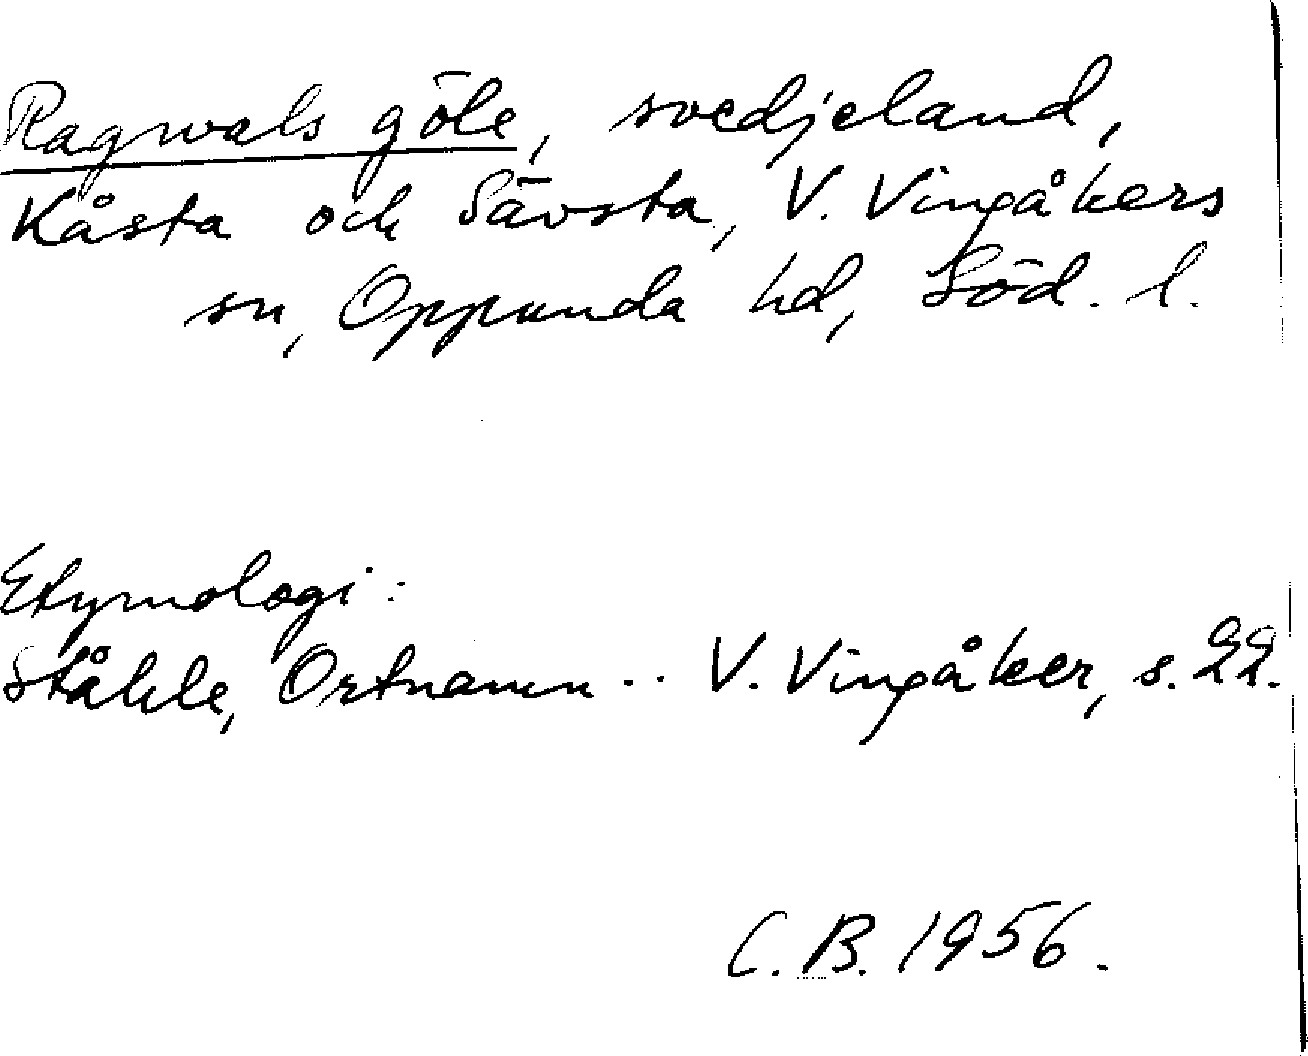 Ragwals göle, svedjeland,
Kåsta och Sävsta, V. Vingåkers
sn, Oppunda hd, Söd. l.
Etymologi:
Ståhle, Ortnamn .. V. Vingåker, s. 22.
C. B. 1956.